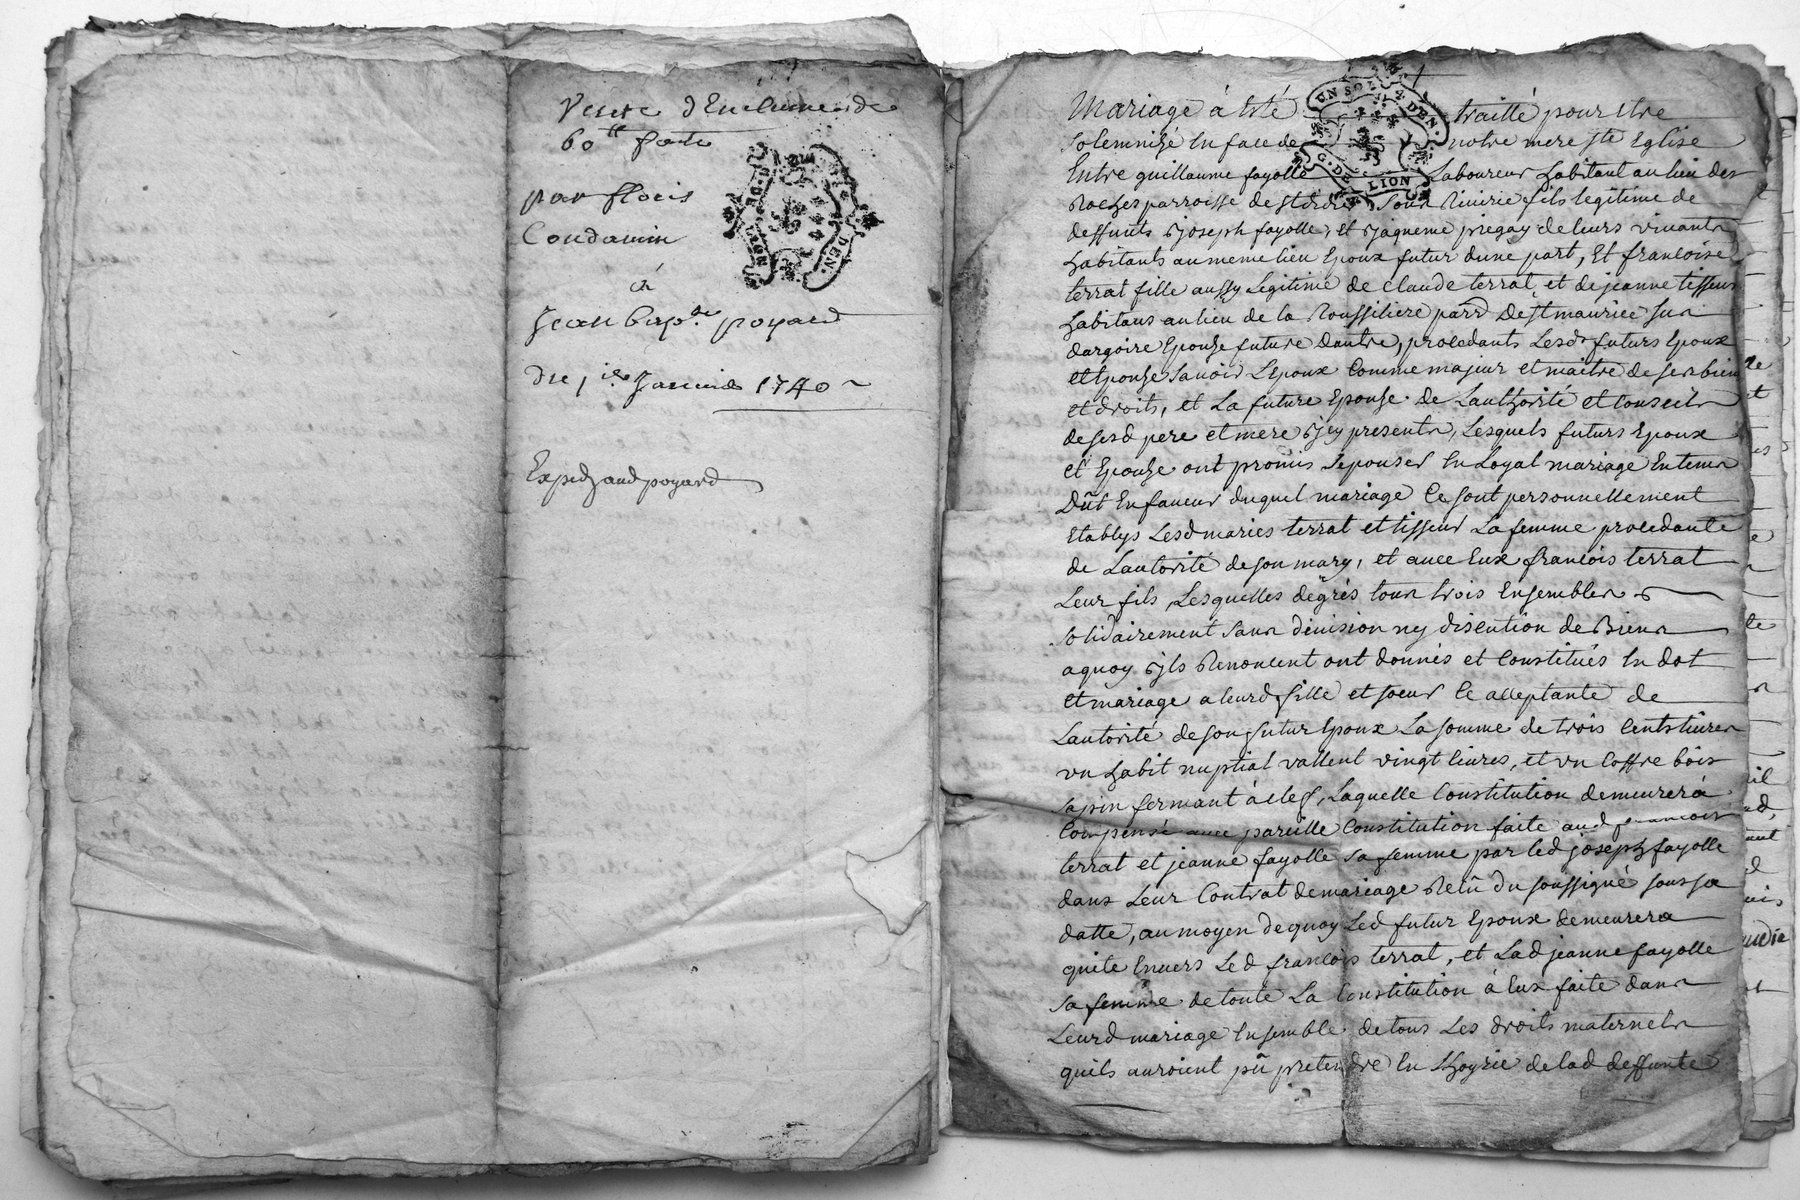 Vente d'Enclume de
60ᵗᵗ
par flois
Condamin
à
Jean bapᵗᵉ poyard
Du 1ᵉʳ Janvier 1740
Exped aud poyard
UN SOL 4 DEN.
G. DE LION
Mariage à Esté traitté pour Etre
Solemnizé En face de notre mere Sᵗᵉ Eglise
Entre guillaume fayolle Laboureur habitant au lieu des
Roches parroisse de Sᵗ Rivirie fils legitime de
deffunts Joseph fayolle, et Jaqueme de leurs vivants
habitants au meme lieu Epoux futur d'une part, Et francoise
terrat fille aussy Legitime de Claude terrat et de jeanne tisseur
habitans au lieu de la Roussiliere parr De St maurice sur
dargoire Epouse future Dautre, procedants Lesd futurs Epoux
et Epouse Savoir L'epoux Comme majeur et maitre de ses biens
et droits, et La future Epouse de L'authorité et Conseils
de sesd pere et mere Jcy presents, Lesquels futurs Epoux
et Epouse ont promis S'epouser En Loyal mariage
En faveur duquel mariage Ce sont personnellement
Etablys Lesd maries terrat et tisseur La femme procedante
de L'autorité de son mary, et avec Eux francois terrat
Leur fils, Lesquelles de grés tous trois Ensembles
Solidairement sans division ny discution de Biens
a quoy Jls Renoncent ont donnés et Constitués En dot
et mariage a leurd fille et soeur Ce acceptante de
L'autorité de son futur Epoux La somme de trois Cents livres
un habit nuptial vallent vingt livres, et un Coffre bois
sapin fermant à clef, Laquelle Constitution demeurerá
Compensé avec pareille Constitution faite aud francois
terrat et jeanne fayolle sa femme par led joseph fayolle
dans Leur Contrat de mariage Recû du soussigné sous sa
datte, au moyen de quoy Led futur Epoux demeurera
quite Envers Led francois terrat, et Lad jeanne fayolle
sa femme de toute La Constitution à Eux faite dans
Leurd mariage Ensemble de tous Les droits maternels
quils auroient pû pretendre En L'hoyrie de lad deffunte